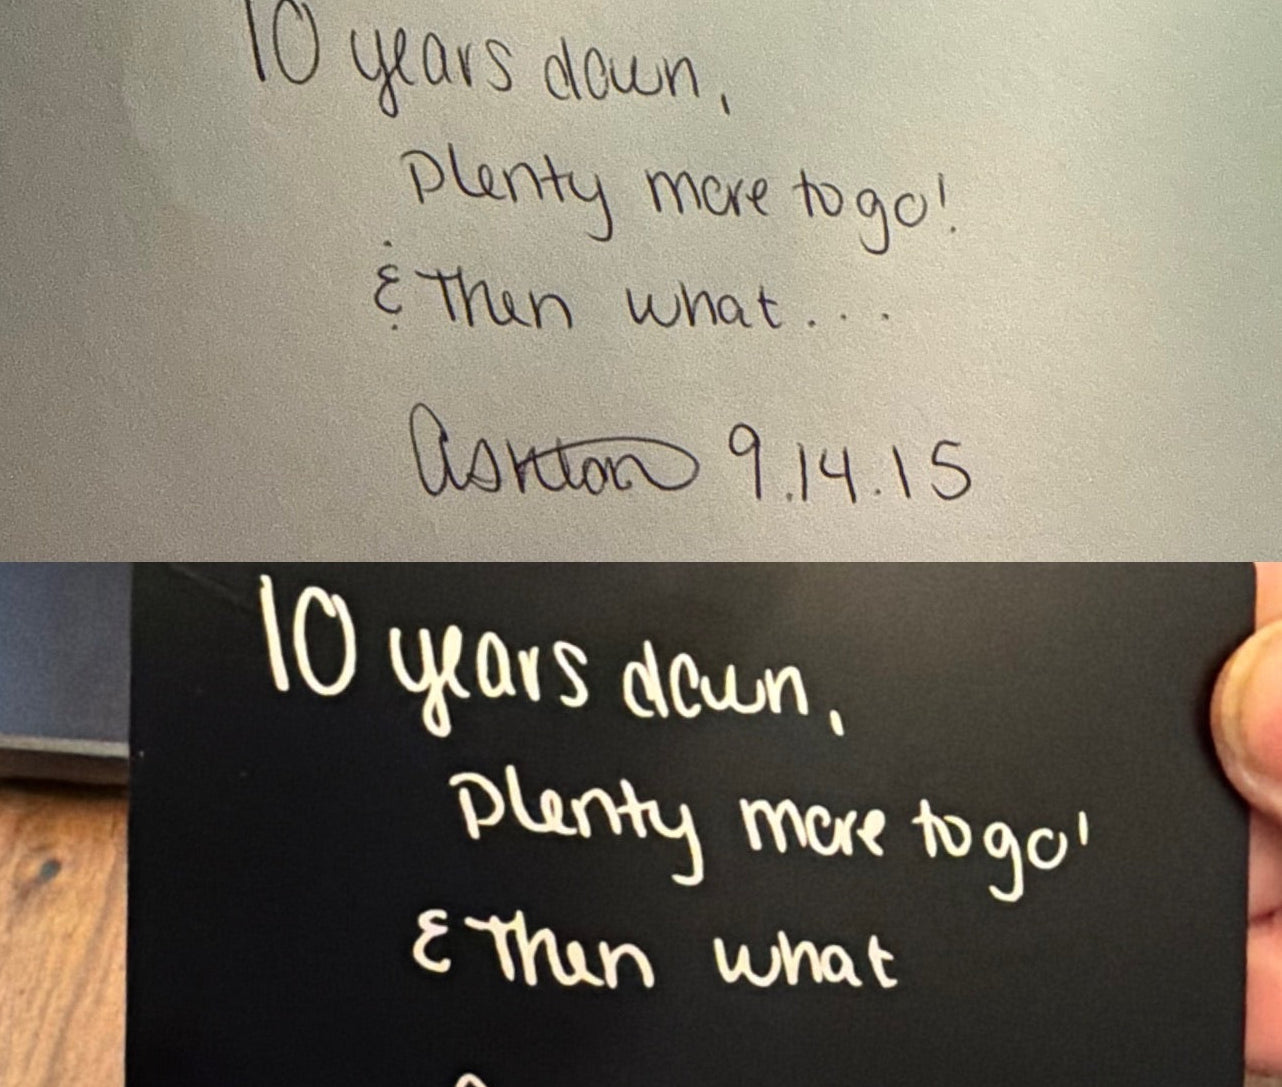 10 years down,
plenty more to go!
& then what...
Ashton 9.14.15
10 years down,
plenty more to go'
& then what